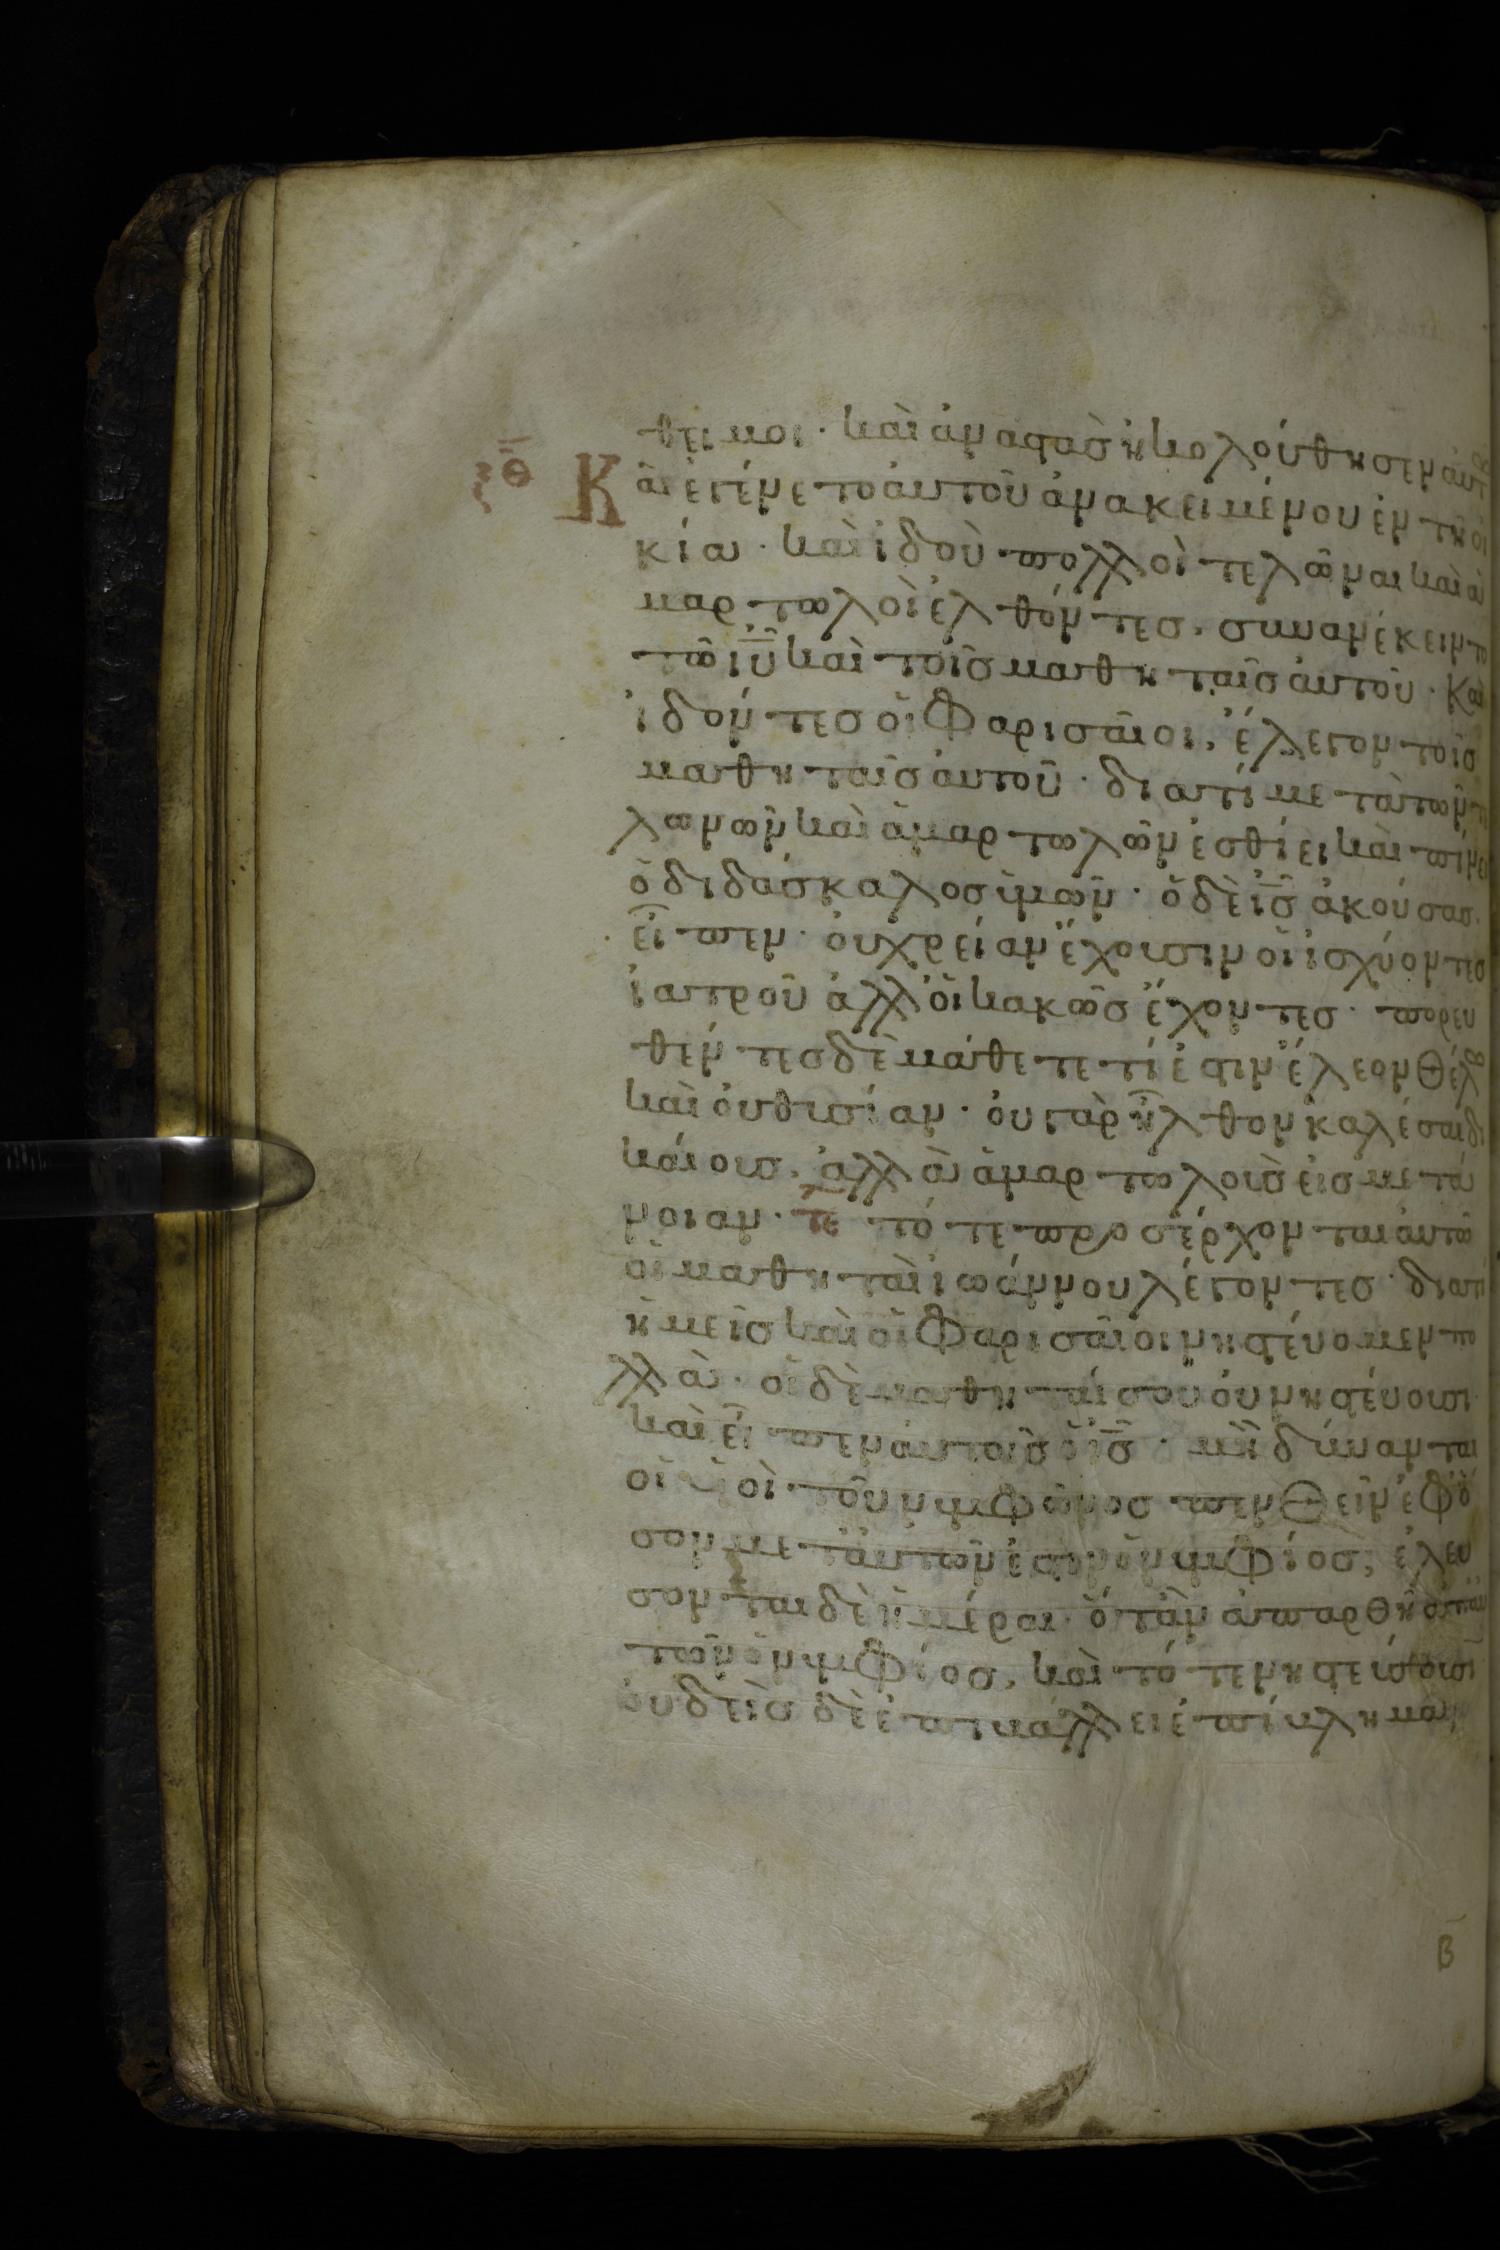 θει μοι · καὶ ἀναστὰσ ἠκολούθησεν αὐτ
ξθ Και ἐγένετο αὐτοῦ ἀνακειμένου ἐν τῆ οἰ
κία · καὶ ἰδοὺ πολλοὶ τελῶναι καὶ ἁ
μαρτωλοὶ ἐλθόντεσ, συνανέκειντο
τῶ ιῦ καὶ τοῖσ μαθηταῖσ αὐτοῦ · Και
ἰδόντεσ οἱ Φαρισαῖοι, ἔλεγον τοῖσ
μαθηταῖσ αὐτοῦ · διατί μετὰ τῶν τε
λωνῶν καὶ ἁμαρτωλῶν ἐσθίει καὶ πίνει
ὁ διδάσκαλοσ ὑμῶν · ὁ δὲ ισ ἀκούσασ
εἶπεν · ὀυ χρείαν ἔχουσιν οἱ ἰσχύοντεσ
ἰατροῦ ἀλλ' οἱ κακῶσ ἔχοντεσ · πορευ
θέντεσ δὲ μάθετε τί ἐστιν ἔλεον θέλω
καὶ ὀυ θυσίαν · ὀυ γὰρ ἦλθον καλέσαι δι
καίουσ, ἀλλὰ ἁμαρτωλοὺσ εἰσ μετά
νοιαν · τε τότε προσέρχονται αὐτῶ
οἱ μαθηταὶ ἰωάννου λέγοντεσ · διατί
ἡμεῖσ καὶ οἱ Φαρισαῖοι νηστεύομεν πο
λλὰ · οἱ δὲ μαθηταί σου ὀυ νηστεύουσι
καὶ εἶπεν αὐτοῖσ ὁ ισ · μὴ δύνανται
οἱ υἱοὶ τοῦ νυμφῶνοσ πενθεῖν ἐφ ὅ
σον μετ αὐτῶν ἐστιν ὁ νυμφίοσ, ἐλεύ
σονται δὲ ἡμέραι ὅταν ἀπαρθῆ ἀπ' αὐ
τῶν ὁ νυμφίοσ, καὶ τότε νηστεύσουσι
ὀυδεὶσ δὲ ἐπιβάλλει ἐπίβλημα
β